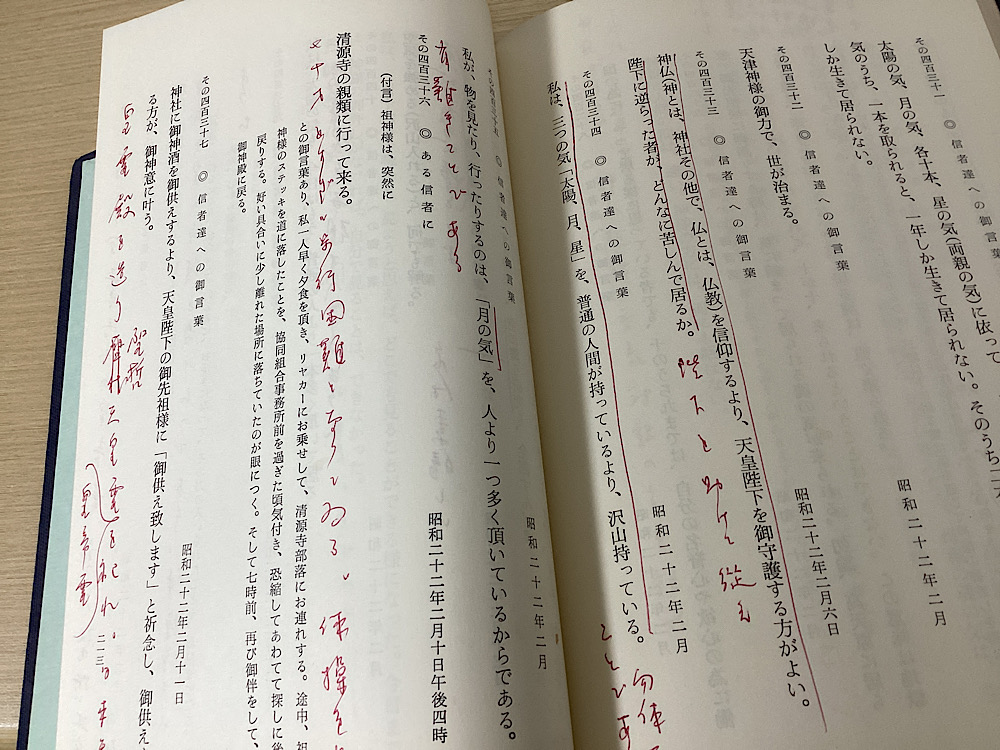 その四百三十一　◎　信者達への御言葉
昭和二十二年二月
太陽の気、月の気、各十本、星の気(両親の気)に依って
気のうち、一本を取られると、一年しか生きて居られない。そのうち二
しか生きて居られない。
その四百三十二　◎　信者達への御言葉
昭和二十二年二月六日
天津神様の御力で、世が治まる。
その四百三十三　◎　信者達への御言葉
昭和二十二年二月
神仏(神とは、神社その他で、仏とは、仏教)を信仰するより、天皇陛下を御守護する方がよい。
陛下に逆らった者が、どんなに苦しんで居るか。
陛下を助け従え
その四百三十四　◎　信者達への御言葉
昭和二十二年二月
私は、三つの気「太陽、月、星」を、普通の人間が持っているより、沢山持っている。
勿体
ことであ
その四百三十五　◎　信者達への御言葉
昭和二十二年二月
私が、物を見たり、行ったりするのは、「月の気」を、人より一つ多く頂いているからである。
有難きことである
その四百三十六　◎　ある信者に
昭和二十二年二月十日午後四時
(付言)　祖神様は、突然に
清源寺の親類に行って来る。
歩行困難と
体操を
との御言葉あり、私一人早く夕食を頂き、リヤカーにお乗せして、清源寺部落にお連れする。途中、祖
神様のステッキを道に落したことを、協同組合事務所前を過ぎた頃気付き、恐縮してあわてて探しに後
戻りする。好い具合いに少し離れた場所に落ちていたのが眼につく。そして七時前、再び御伴をして、
御神殿に戻る。
その四百三十七　◎　信者達への御言葉
昭和二十二年二月十一日
神社に御神酒を御供えするより、天皇陛下の御先祖様に「御供え致します」と祈念し、御供え
る方が、御神意に叶う。
皇霊殿を造り
聖哲
三皇霊を祀れ。
(皇帝霊)
二二三